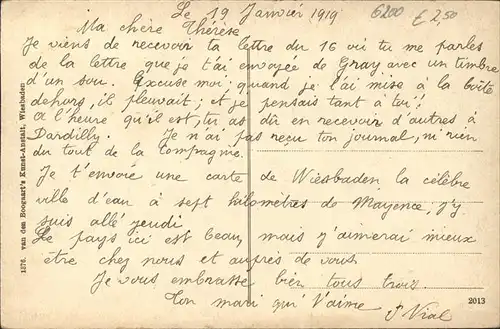 Le 19 Janvier 1919
6200 £ 2,50
Ma chère Thérèse
Je viens de recevoir ta lettre du 16 où tu me parles
de la lettre que je t'ai envoyée de Gray avec un timbre
d'un sou. Excuse moi quand je l'ai mise à la boîte
dehors, il pleuvait; et je pensais tant à toi!
A l'heure qu'il est, tu as dû en recevoir d'autres à
Dardilly. Je n'ai pas reçu ton journal, ni rien
du tout de la Compagnie.
Je t'envoie une carte de Wiesbaden la célèbre
ville d'eau à sept kilomètres de Mayence, j'y
suis allé jeudi
Le pays ici est beau, mais j'aimerai mieux
être chez nous et auprès de vous.
Je vous embrasse bien tous trois
Ton mari qui t'aime
J Vial
1376. van den Boogaart's Kunst-Anstalt, Wiesbaden
2013